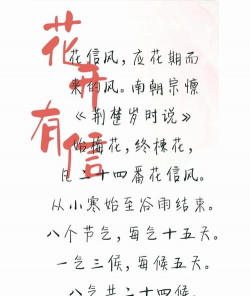 花开有信
花信风，应花期而
来的风。南朝宗懔
《荆楚岁时说》
始梅花，终楝花，
凡二十四番花信风。
从小寒始至谷雨结束。
八个节气，每气十五天。
一气三候，每候五天。
八气共二十四候，